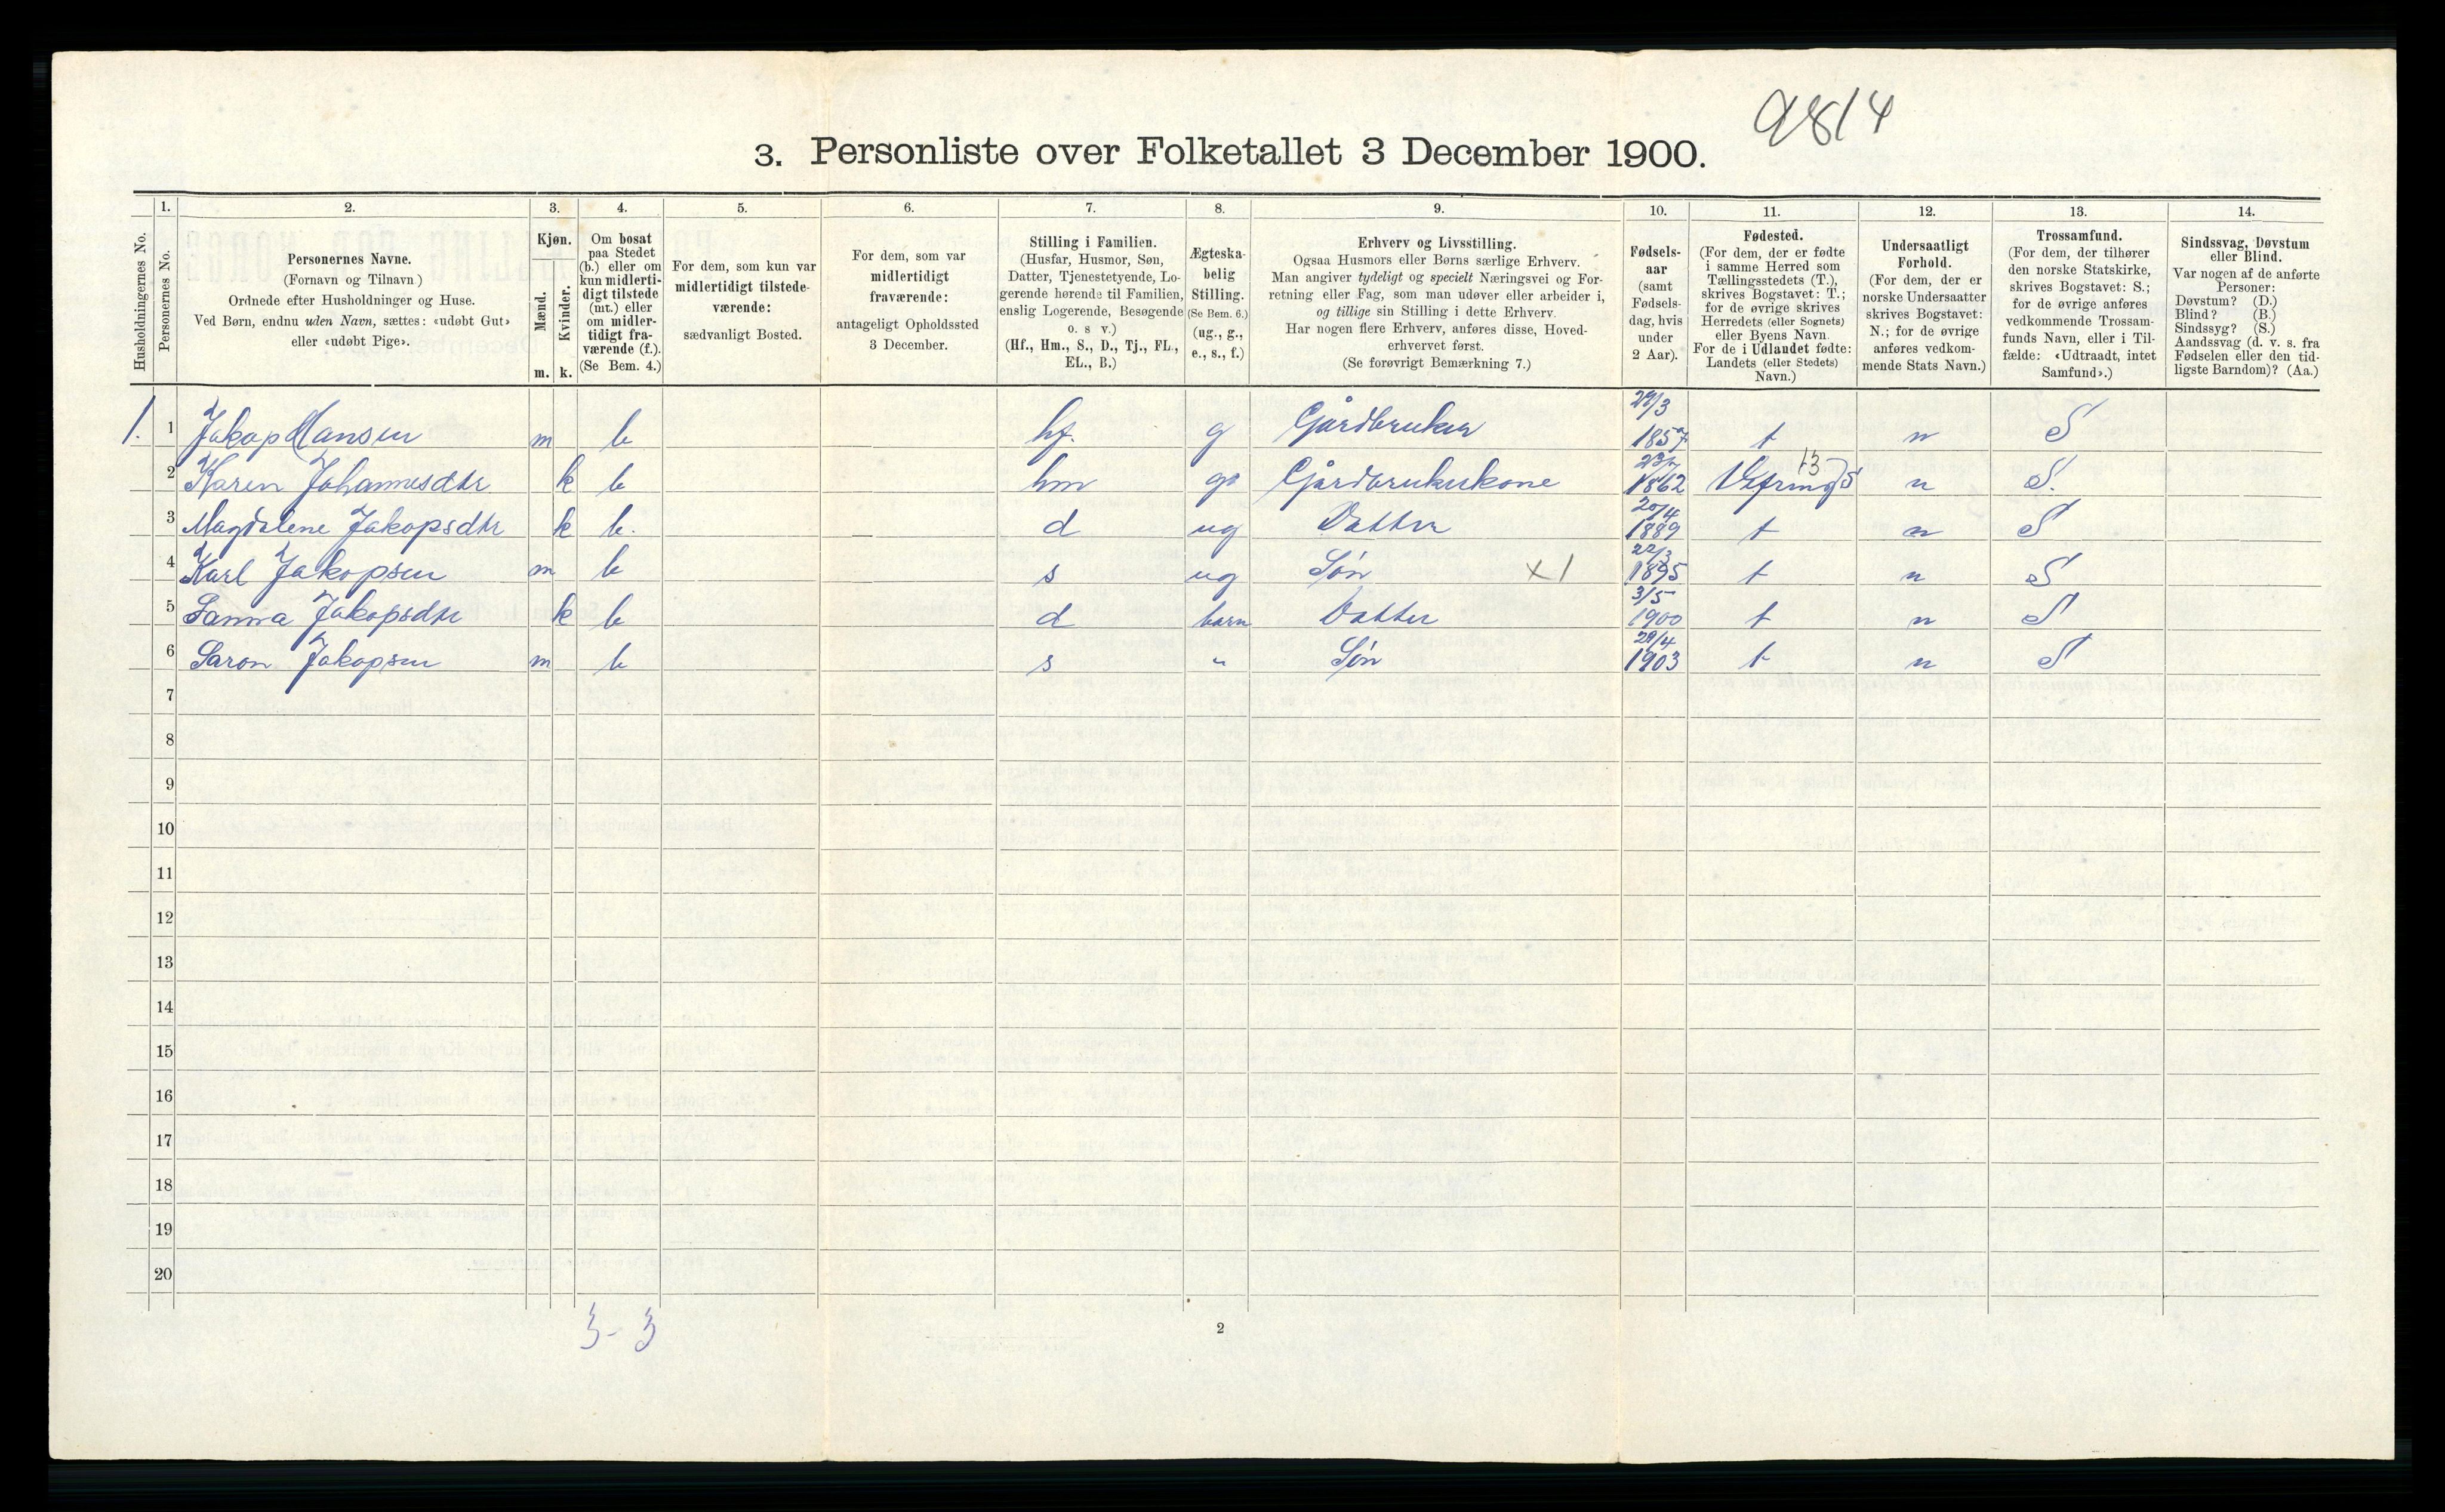 9814
3. Personliste over Folketallet 3 December 1900.
1. 2. 3. 4. 5. 6. 7. 8. 9. 10. 11. 12. 13. 14.
Husholdningernes No.
Personernes No.
Personernes Navne.
(Fornavn og Tilnavn.)
Ordnede efter Husholdninger og Huse.
Ved Børn, endnu uden Navn, sættes: «udøbt Gut»
eller «udøbt Pige».
Kjøn.
Mænd.
Kvinder.
m. k.
Om bosat
paa Stedet
(b.) eller om
kun midlerti-
digt tilstede
(mt.) eller
om midler-
tidigt fra-
værende (f.).
(Se Bem. 4.)
For dem, som kun var
midlertidigt tilstede-
værende:
sædvanligt Bosted.
For dem, som var
midlertidigt
fraværende:
antageligt Opholdssted
3 December.
Stilling i Familien.
(Husfar, Husmor, Søn,
Datter, Tjenestetyende, Lo-
gerende hørende til Familien,
enslig Logerende, Besøgende
o. s v.)
(Hf., Hm., S., D., Tj., FL.,
EL., B.)
Ægteska-
belig
Stilling.
(Se Bem. 6.)
(ug., g.,
e., s., f.)
Erhverv og Livsstilling.
Ogsaa Husmors eller Børns særlige Erhverv.
Man angiver tydeligt og specielt Næringsvei og For-
retning eller Fag, som man udøver eller arbeider i,
og tillige sin Stilling i dette Erhverv.
Har nogen flere Erhverv, anføres disse, Hoved-
erhvervet først.
(Se forøvrigt Bemærkning 7.)
Fødsels-
aar
(samt
Fødsels-
dag, hvis
under
2 Aar).
Fødested.
(For dem, der er fødte
i samme Herred som
Tællingsstedets (T.),
skrives Bogstavet: T.;
for de øvrige skrives
Herredets (eller Sognets)
eller Byens Navn.
For de i Udlandet fødte:
Landets (eller Stedets)
Navn.)
Undersaatligt
Forhold.
(For dem, der er
norske Undersaatter
skrives Bogstavet:
N.; for de øvrige
anføres vedkom-
mende Stats Navn.)
Trossamfund.
(For dem, der tilhører
den norske Statskirke,
skrives Bogstavet: S.;
for de øvrige anføres
vedkommende Trossam-
funds Navn, eller i Til-
fælde: «Udtraadt, intet
Samfund».)
Sindssvag, Døvstum
eller Blind.
Var nogen af de anførte
Personer:
Døvstum? (D.)
Blind? (B.)
Sindssyg? (S.)
Aandssvag (d. v. s. fra
Fødselen eller den tid-
ligste Barndom)? (Aa.)
1. 1 Jakop Hansen m b hf. g Gårdbruker 29/3 1857 t n S
2 Karen Johannesdtr k b hm g Gårdbrukerkone 1862 13 n S.
3 Magdalene Jakopsdtr k b. d ug Datter 20/4 1889 t n S
4 Karl Jakopsen m b s ug Søn x1 22/3 1895 t n S
5 Sanna Jakopsdtr k b d barn Datter 3/5 1900 t n S
6 Saron Jakopsen m b s " Søn 29/4 1903 t n S
7
8
9
10
11
12
13
14
15
16
17
18
19
20
3 - 3
2